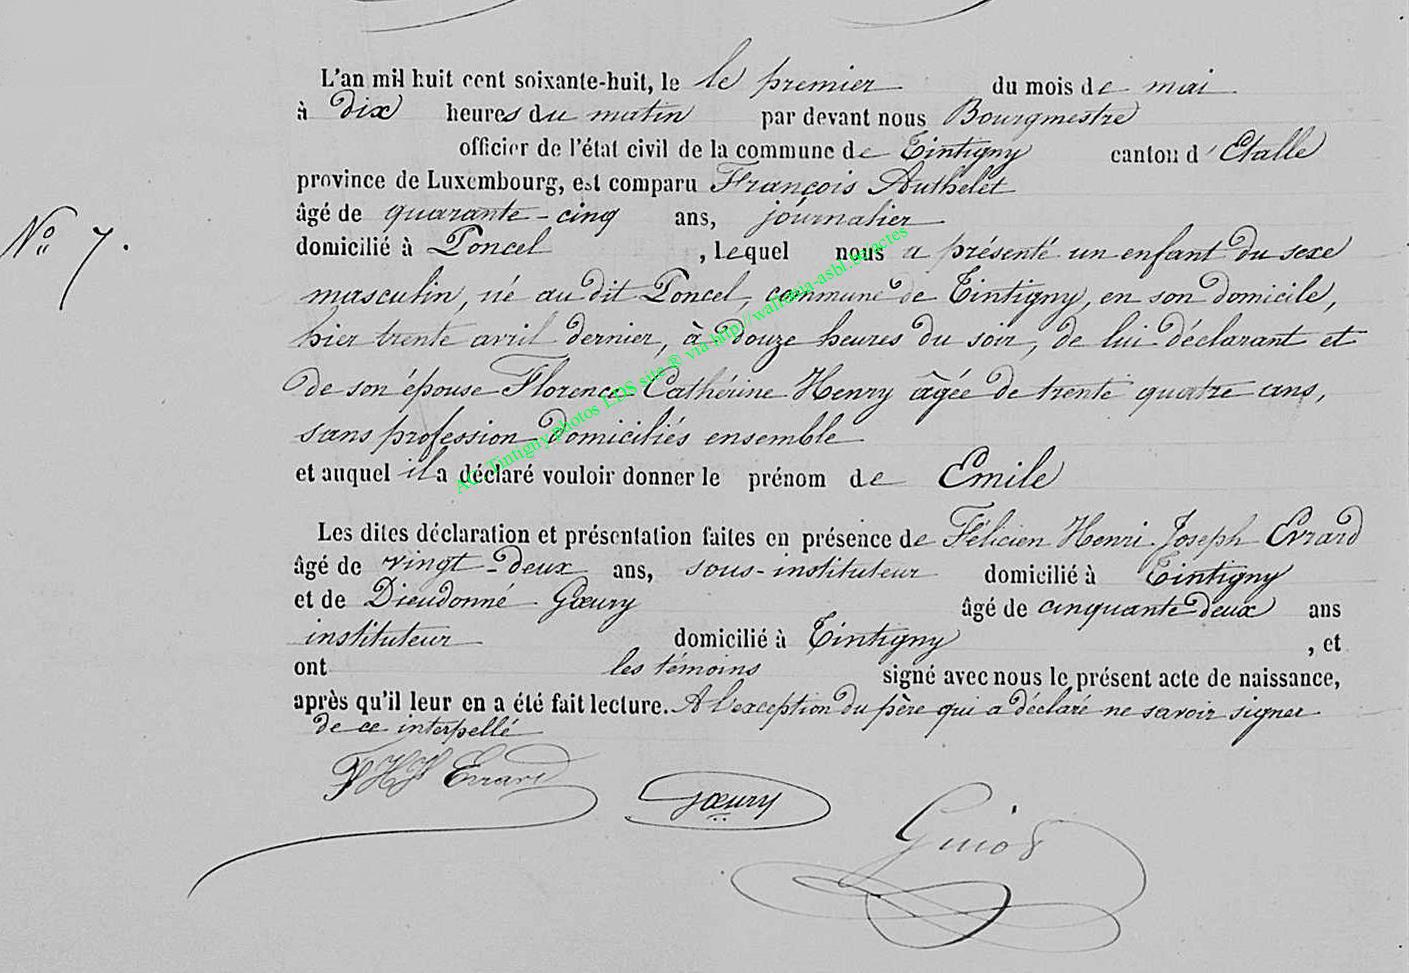 L'an mil huit cent soixante-huit, le le premier du mois de mai
à dix heures du matin par devant nous Bourgmestre
officier de l'état civil de la commune de Tintigny canton d' Etalle
province de Luxembourg, est comparu François Authelet
âgé de quarante-cinq ans, journalier
N° 7.
domicilié à Poncel, lequel nous a présenté un enfant du sexe
masculin, né au dit Poncel, commune de Tintigny, en son domicile,
hier trente avril dernier, à douze heures du soir, de lui déclarant et
de son épouse Florence Cathérine Henry âgée de trente quatre ans,
sans profession domiciliés ensemble
et auquel il a déclaré vouloir donner le prénom de Emile
Les dites déclaration et présentation faites en présence de Félicien Henri Joseph Evrard
âgé de vingt-deux ans, sous-instituteur domicilié à Tintigny
et de Dieudonné Gœury âgé de cinquante deux ans
instituteur domicilié à Tintigny, et
ont les témoins signé avec nous le présent acte de naissance,
après qu'il leur en a été fait lecture. A l'exception du père qui a déclaré ne savoir signer
de ce interpellé
FHJ Evrard
Gœury
Guiot
AC Tintigny photos LDS site ® via http://wallonia-asbl.be/actes